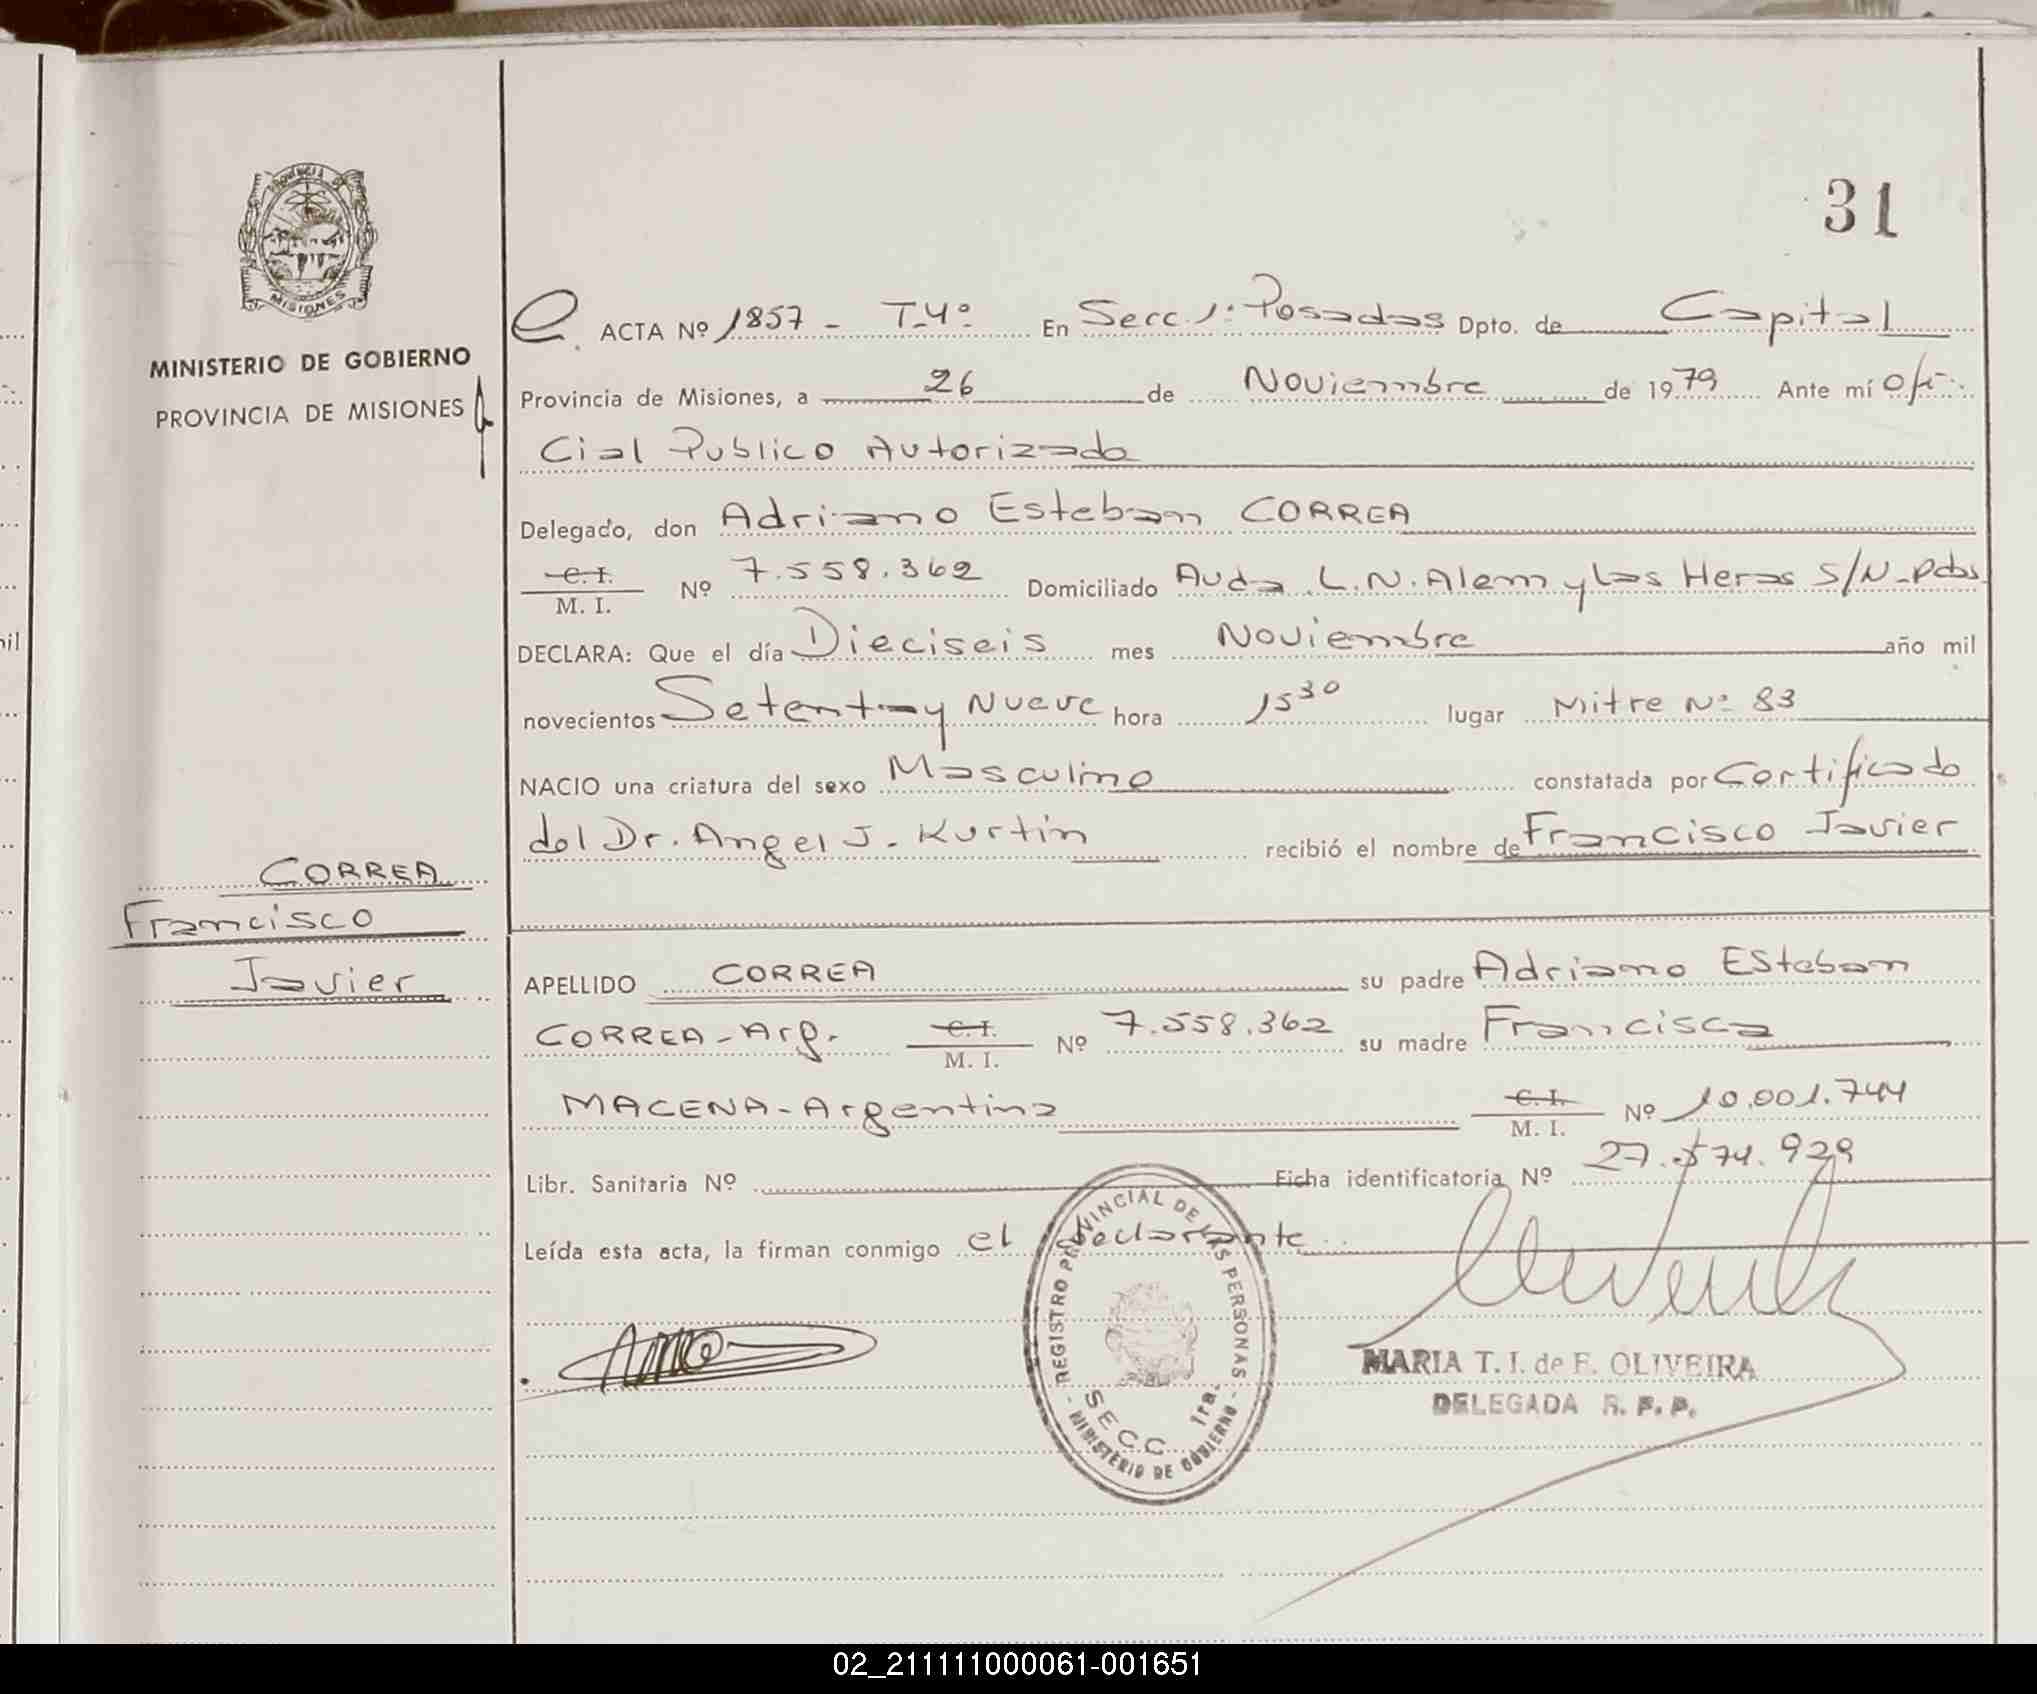 31
PROVINCIA DE
MISIONES
MINISTERIO DE GOBIERNO
PROVINCIA DE MISIONES
CORREA
Francisco
Javier
ACTA Nº 1857 - T-4º En Secc. 1ª Posadas Dpto. de Capital
Provincia de Misiones, a 26 de Noviembre de 1979 Ante mí Ofi-
cial Publico Autorizado
Delegado, don Adriano Esteban CORREA
C. I.
M. I. Nº 7.558.362 Domiciliado Avda L.N. Alem y Las Heras S/N-pdas
DECLARA: Que el día Dieciseis mes Noviembre año mil
novecientos Setenta y Nueve hora 15 30 lugar Mitre Nº 83
NACIO una criatura del sexo Masculino constatada por Certificado
del Dr. Angel J. Kurtin recibió el nombre de Francisco Javier
APELLIDO CORREA su padre Adriano Esteban
CORREA-Arg. C. I.
M. I. Nº 7.558.362 su madre Francisca
MACENA-Argentina C. I.
M. I. Nº 10.001.744
Libr. Sanitaria Nº Ficha identificatoria Nº 27.574.929
Leída esta acta, la firman conmigo el declarante
REGISTRO PROVINCIAL DE LAS PERSONAS
SECC 1ra.
- MINISTERIO DE GOBIERNO -
MARIA T. I. de F. OLIVEIRA
DELEGADA R. P. P.
02_211111000061-001651